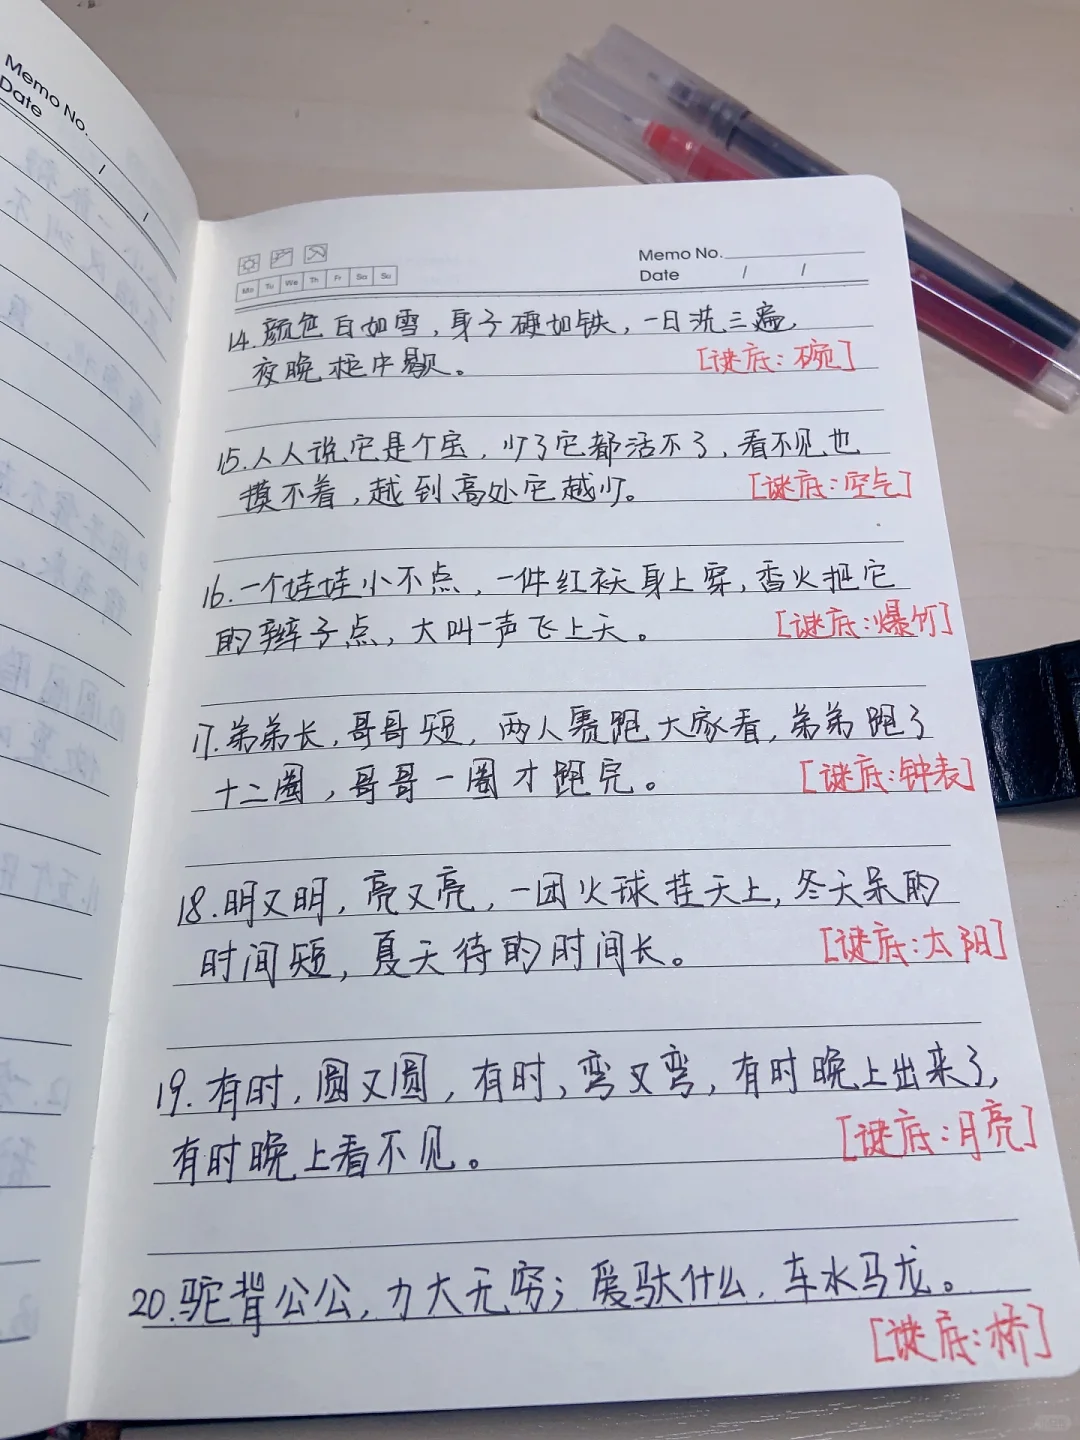 Memo No.
Date / /
Memo No.
Date / /
Mo Tu We Th Fr Sa Su
14.颜色白如雪,身子硬如铁,一日洗三遍,
夜晚柜中歇。 [谜底:碗]
15.人人说它是个宝,少了它都活不了,看不见也
摸不着,越到高处它越少。 [谜底:空气]
16.一个娃娃小不点,一件红袄身上穿,香火把它
的辫子点,大叫一声飞上天。 [谜底:爆竹]
17.弟弟长,哥哥短,两人赛跑大家看,弟弟跑了
十二圈,哥哥一圈才跑完。 [谜底:钟表]
18.明又明,亮又亮,一团火球挂天上,冬天呆的
时间短,夏天待的时间长。 [谜底:太阳]
19.有时,圆又圆,有时,弯又弯,有时晚上出来了,
有时晚上看不见。 [谜底:月亮]
20.驼背公公,力大无穷;爱驮什么,车水马龙。
[谜底:桥]